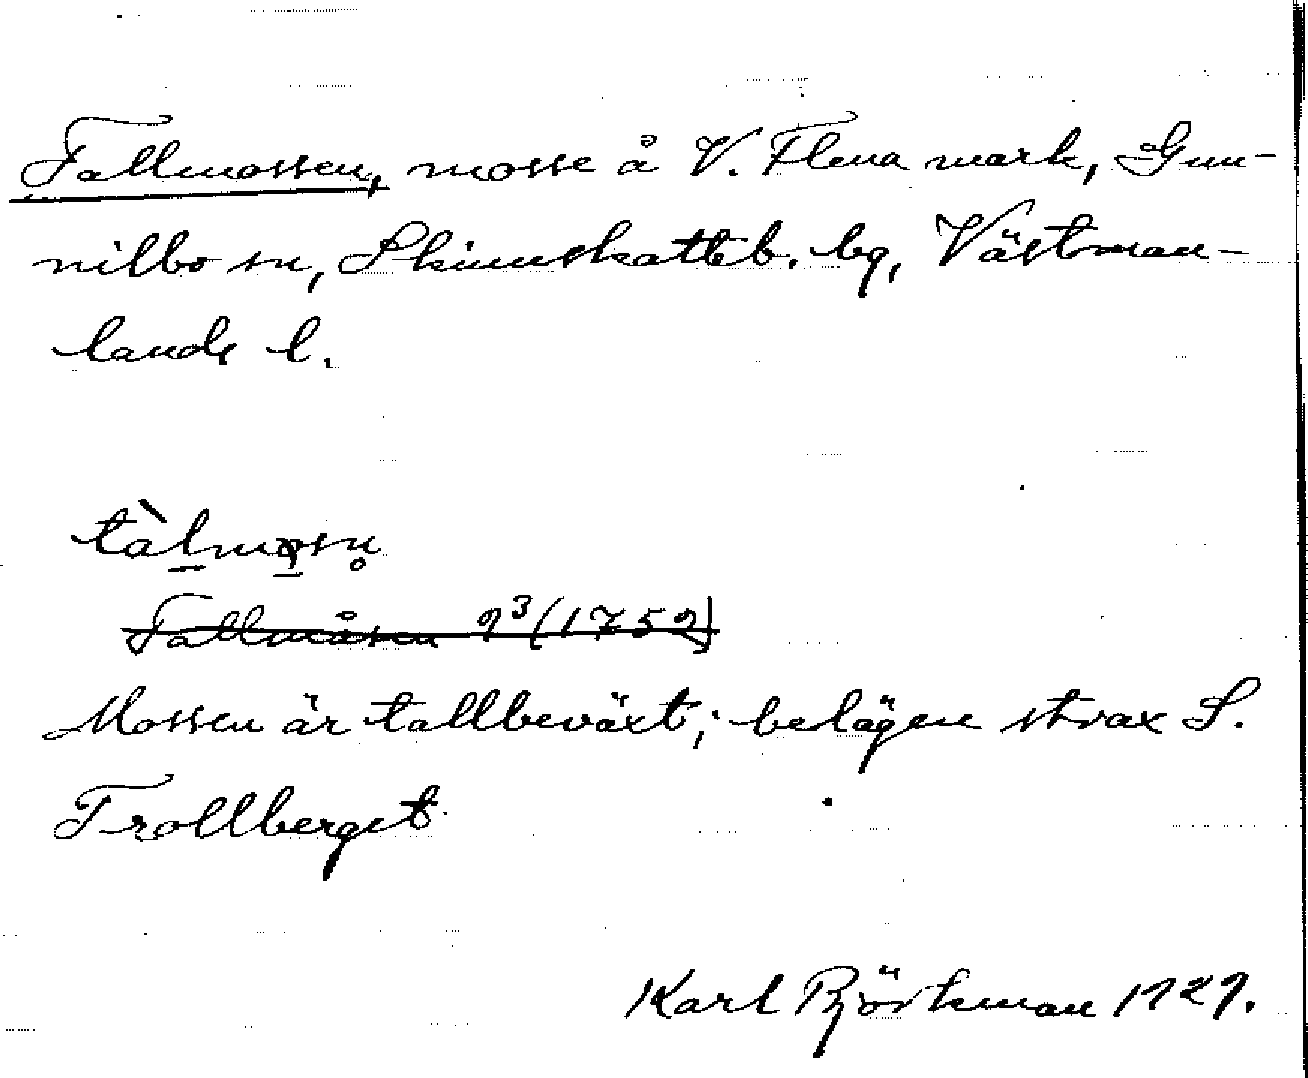 Tallmossen, mosse å V. Flena mark, Gun-
nilbo sn, Skinnskatteb. bg, Västman-
lands l.
tàlmosn̥
Tallmåsen 9³ (1759)
Mossen är tallbeväxt; belägen strax S.
Trollberget
Karl Björkman 1929.